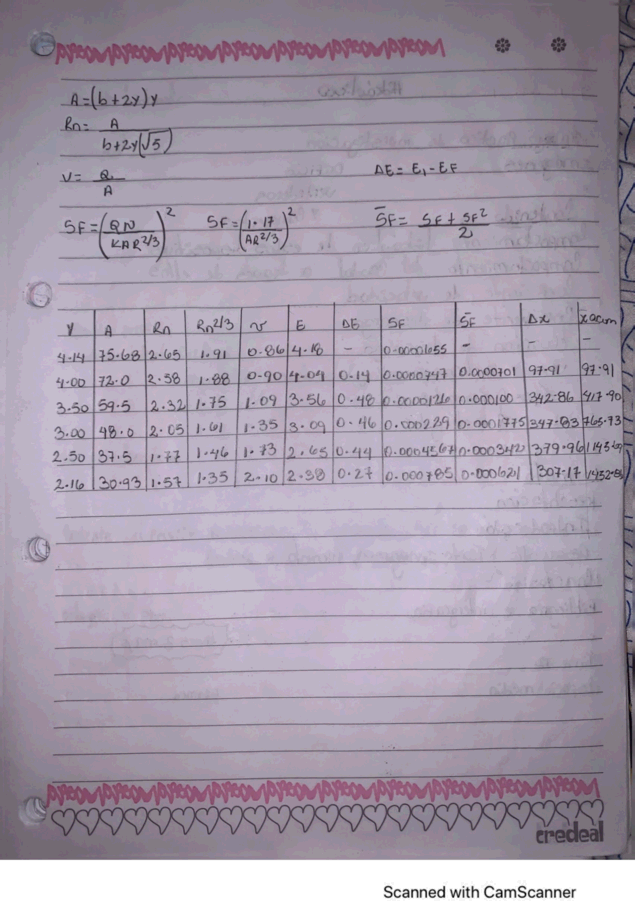 A=(b+2y)y
Rn= A / b+2y(√5)
V= Q / A
ΔE= E1-EF
SF=(QN / KAR^2/3)^2 SF=(1.17 / AR^2/3)^2 S̄F= SF+SF^2 / 2
Y A Rn Rn^2/3 v E ΔE SF S̄F Δx xacum
4.14 75.68 2.65 1.91 0.86 4.18 - 0.0000655 - - -
4.00 72.0 2.58 1.88 0.90 4.04 0.14 0.0000747 0.0000701 97.91 97.91
3.50 59.5 2.32 1.75 1.09 3.56 0.48 0.0000126 0.000100 342.86 417.90
3.00 48.0 2.05 1.61 1.35 3.09 0.46 0.000229 0.0001775 347.83 765.73
2.50 37.5 1.77 1.46 1.73 2.65 0.44 0.0004567 0.000342 379.96
2.16 30.93 1.57 1.35 2.10 2.38 0.27 0.000785 0.000621 307.17
credeal
Scanned with CamScanner